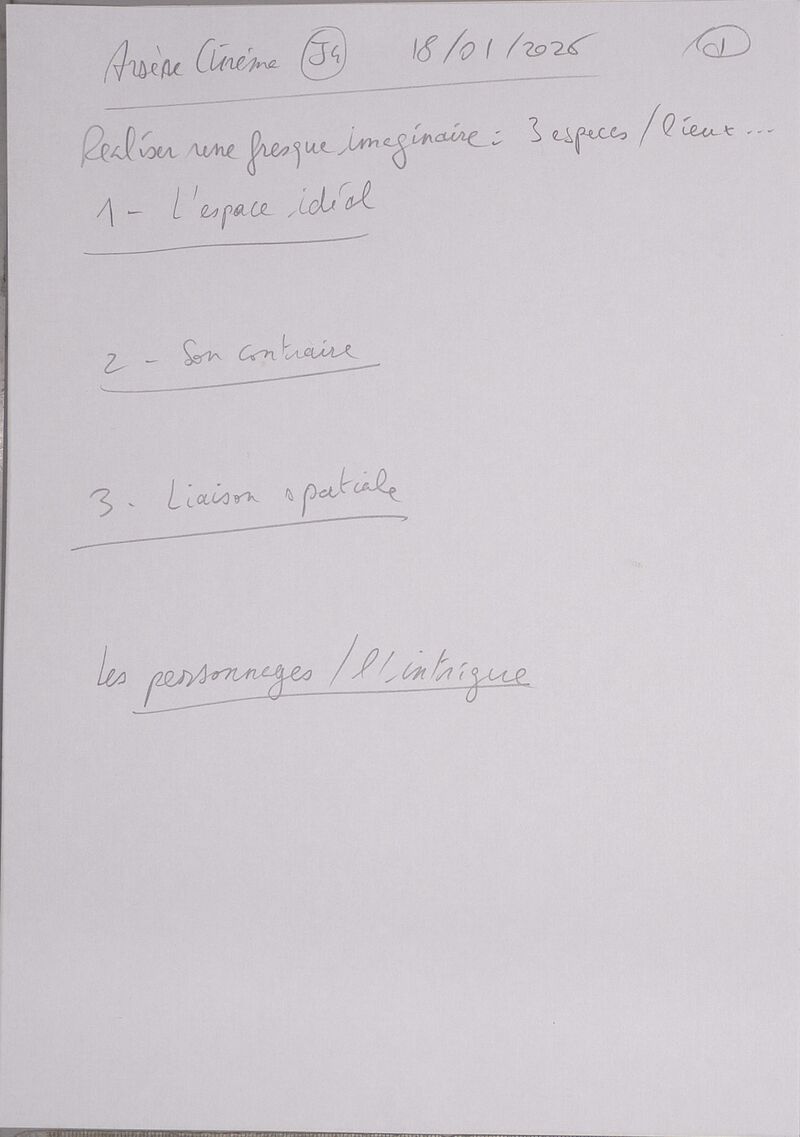 Arsène Cinéma J4 18/01/2026 1
Réaliser une fresque imaginaire : 3 espaces / lieux...
1 - L'espace idéal
2 - Son contraire
3. Liaison spatiale
Les personnages / l'intrigue